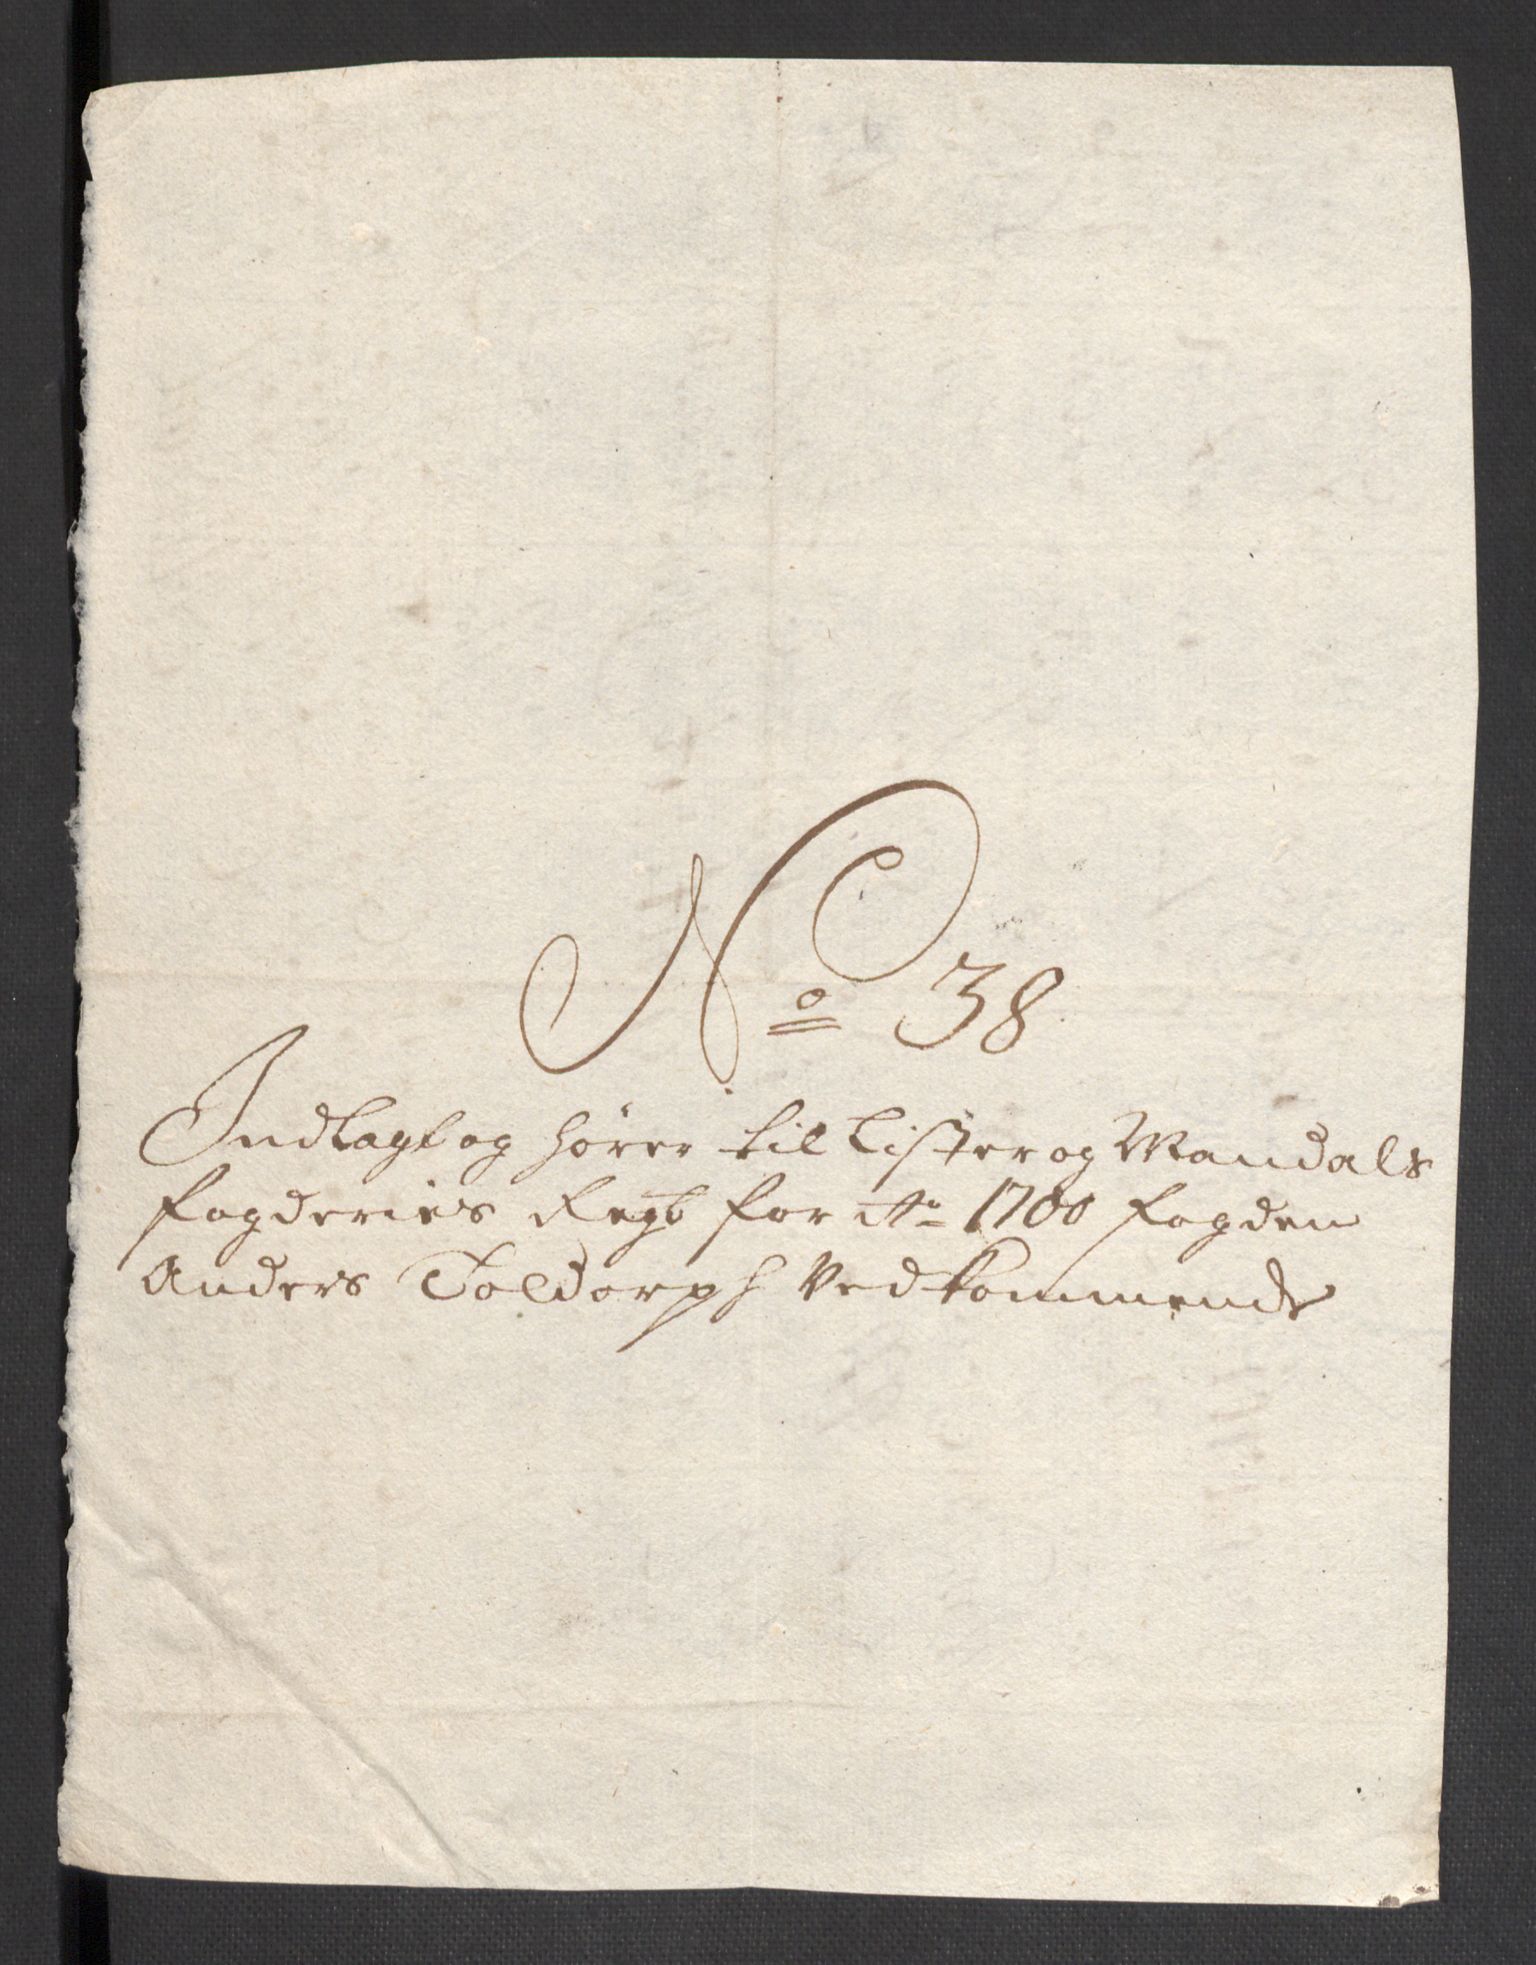 No 38
Indlagt og hører til Lister og Mandals
fogderies Regb for Ao 1700 fogden
Anders Toldorph Vedkommende